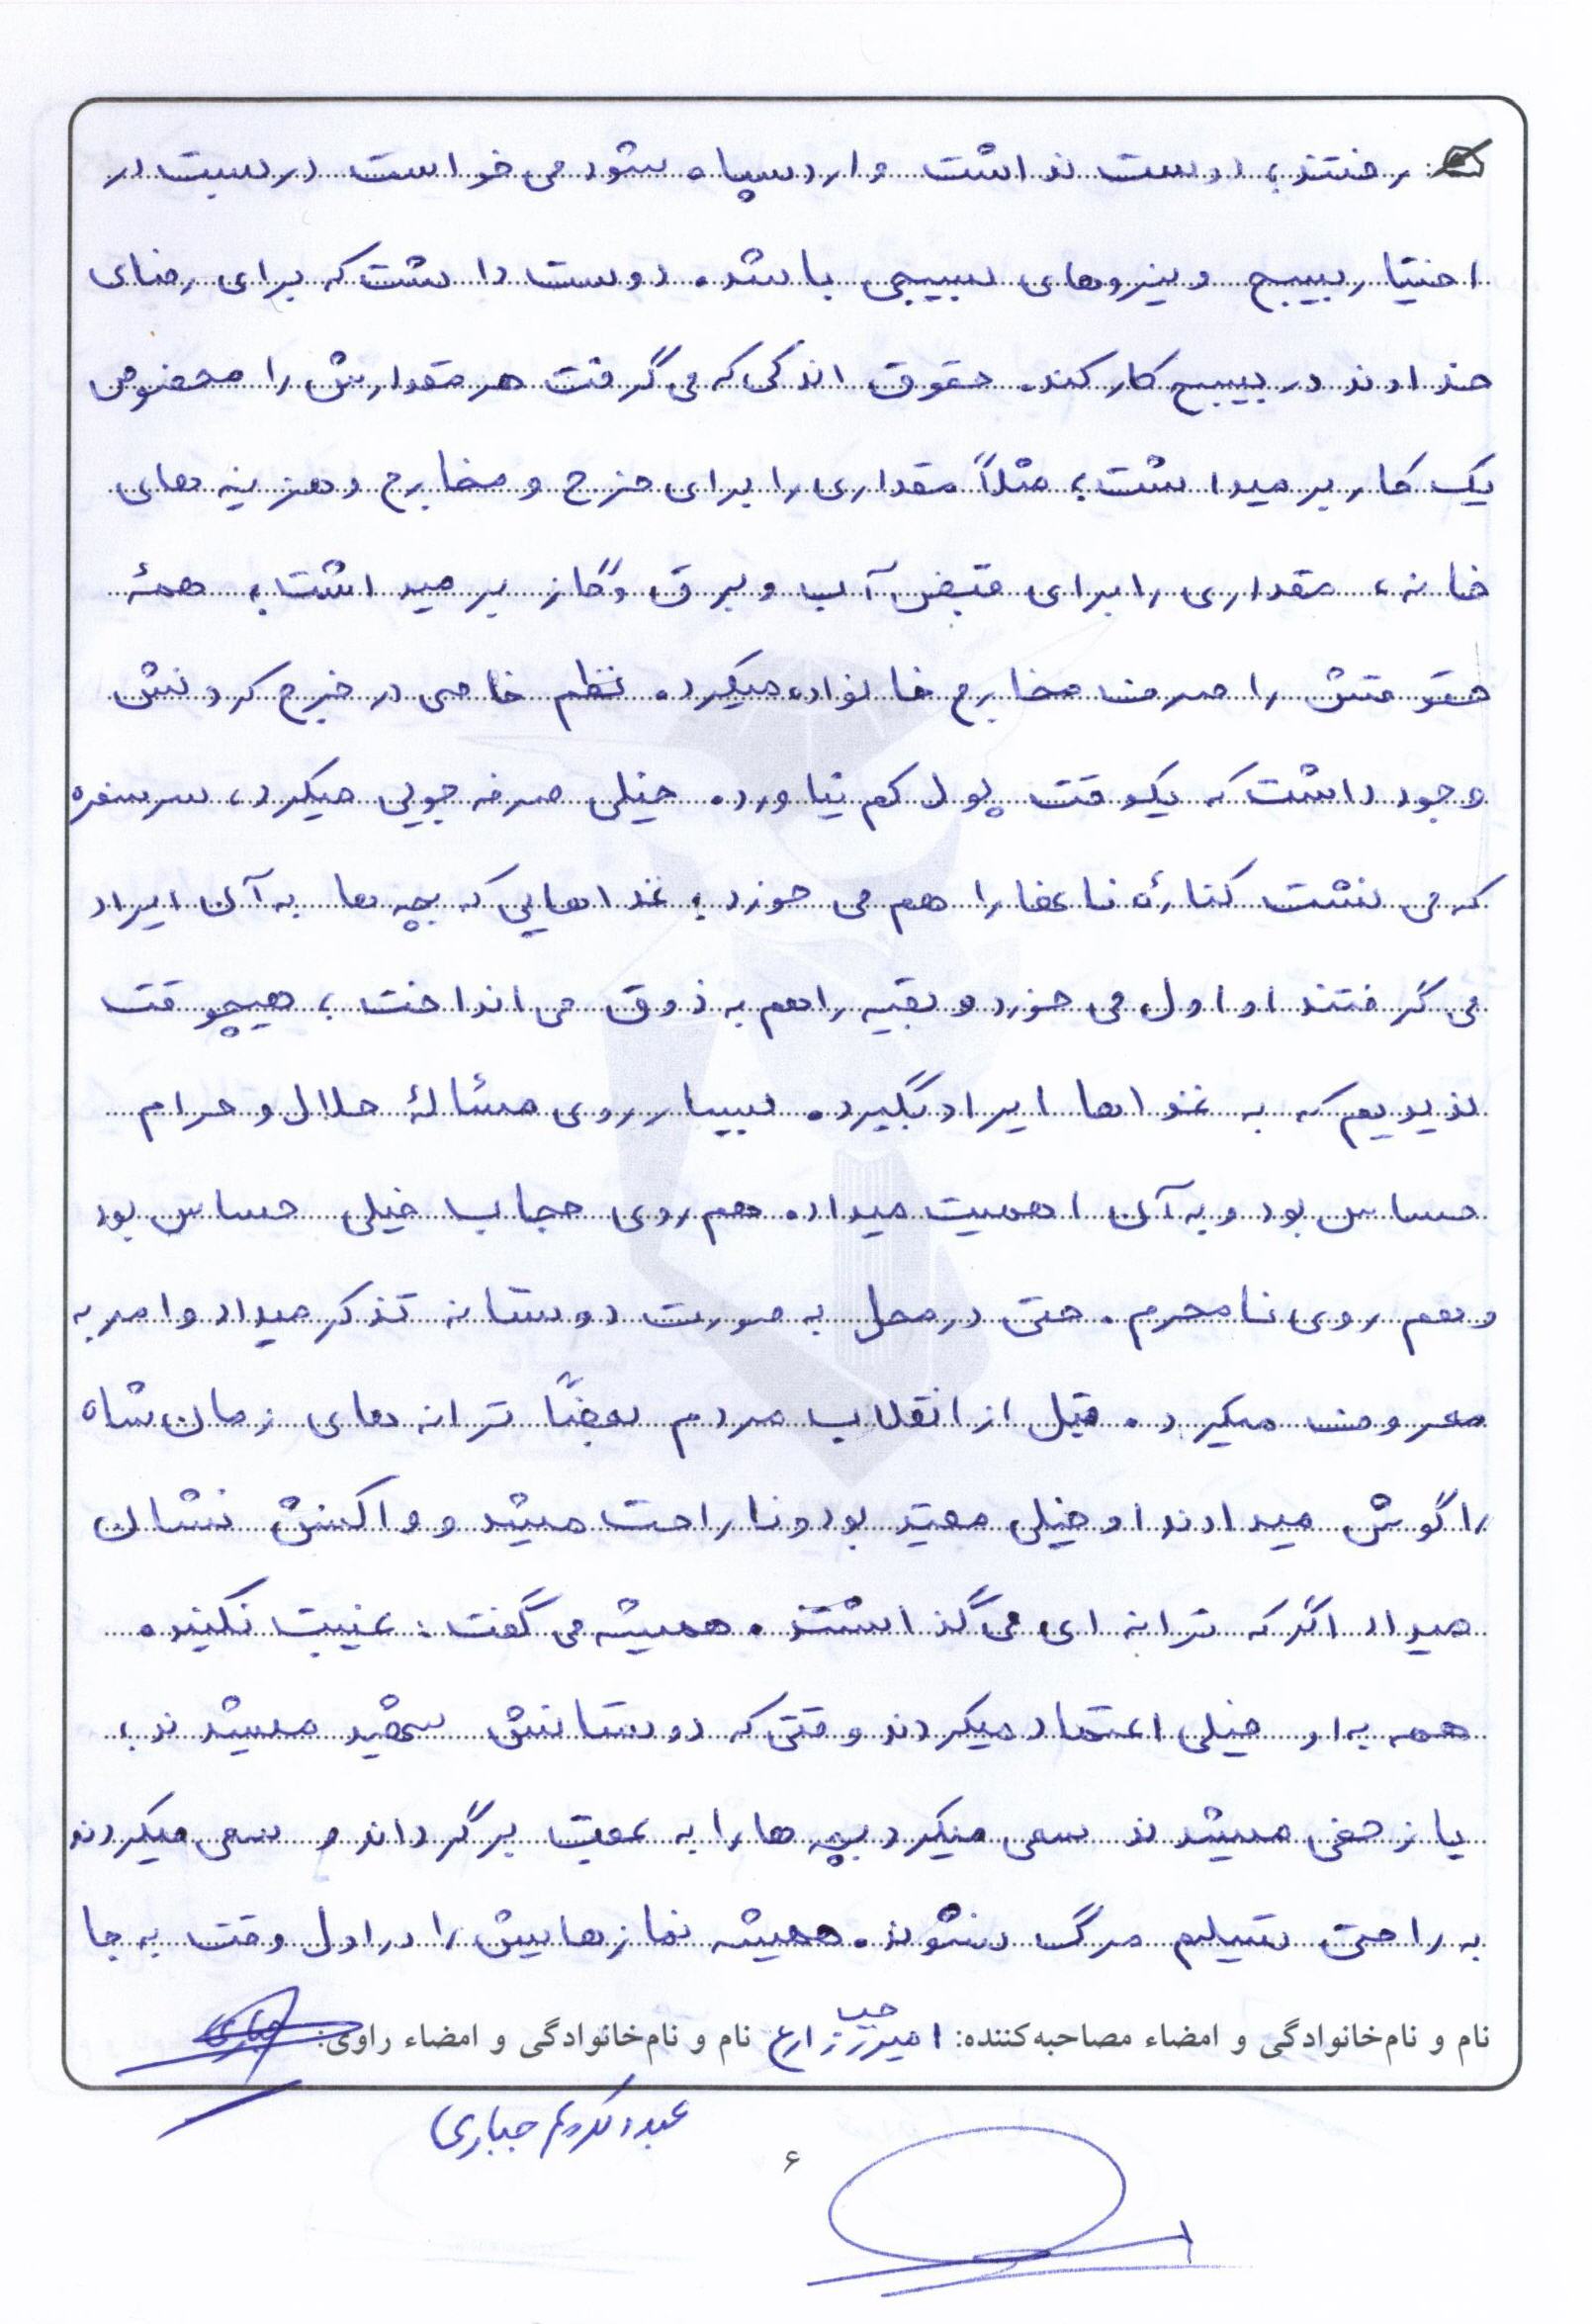 رفتند؛ دوست نداشت وارد سپاه شود می خواست دربست در
اختیار بسیج و نیروهای بسیجی باشد. دوست داشت که برای رضای
خداوند در بسیج کار کند. حقوق اندکی که می گرفت هر مقدارش را مخصوص
یک کار بر میداشت؛ مثلاً مقداری را برای خرج و مخارج و هزینه های
خانه، مقداری را برای قبض آب و برق و گاز بر میداشت؛ همهٔ
حقوقش را صرف مخارج خانواده میکرد. نظم خاصی در خرج کردنش
وجود داشت که یکوقت پول کم نیاورد. خیلی صرفه جویی میکرد، سر سفره
که می نشست کنارهٔ نانها را هم می خورد؛ غذاهایی که بچه ها به آن ایراد
می گرفتند او اول می خورد و بقیه را هم به ذوق می انداخت؛ هیچوقت
ندیدیم که به غذاها ایراد بگیرد. بسیار روی مسئالهٔ حلال و حرام
حساس بود و به آن اهمیت میداد. هم روی حجاب خیلی حساس بود
و هم روی نامحرم. حتی در محل به صورت دوستانه تذکر میداد و امر به
معروف میکرد. قبل از انقلاب مردم بعضاً ترانه های زمان شاه
را گوش میدادند او خیلی مقید بود و ناراحت میشد و واکنش نشان
میداد اگر که ترانه ای می گذاشتند. همیشه می گفت: غیبت نکنید.
همه به او خیلی اعتماد میکردند وقتی که دوستانش شهید میشدند؛
یا زخمی میشدند سعی میکرد بچه ها را به عقب برگرداند و سعی میکردند
به راحتی تسلیم مرگ نشوند. همیشه نمازهایش را در اول وقت به جا
نام و نام‌خانوادگی و امضاء مصاحبه‌کننده: امیر زارع نام و نام‌خانوادگی و امضاء راوی: جباری
عبدالکریم جباری
۶